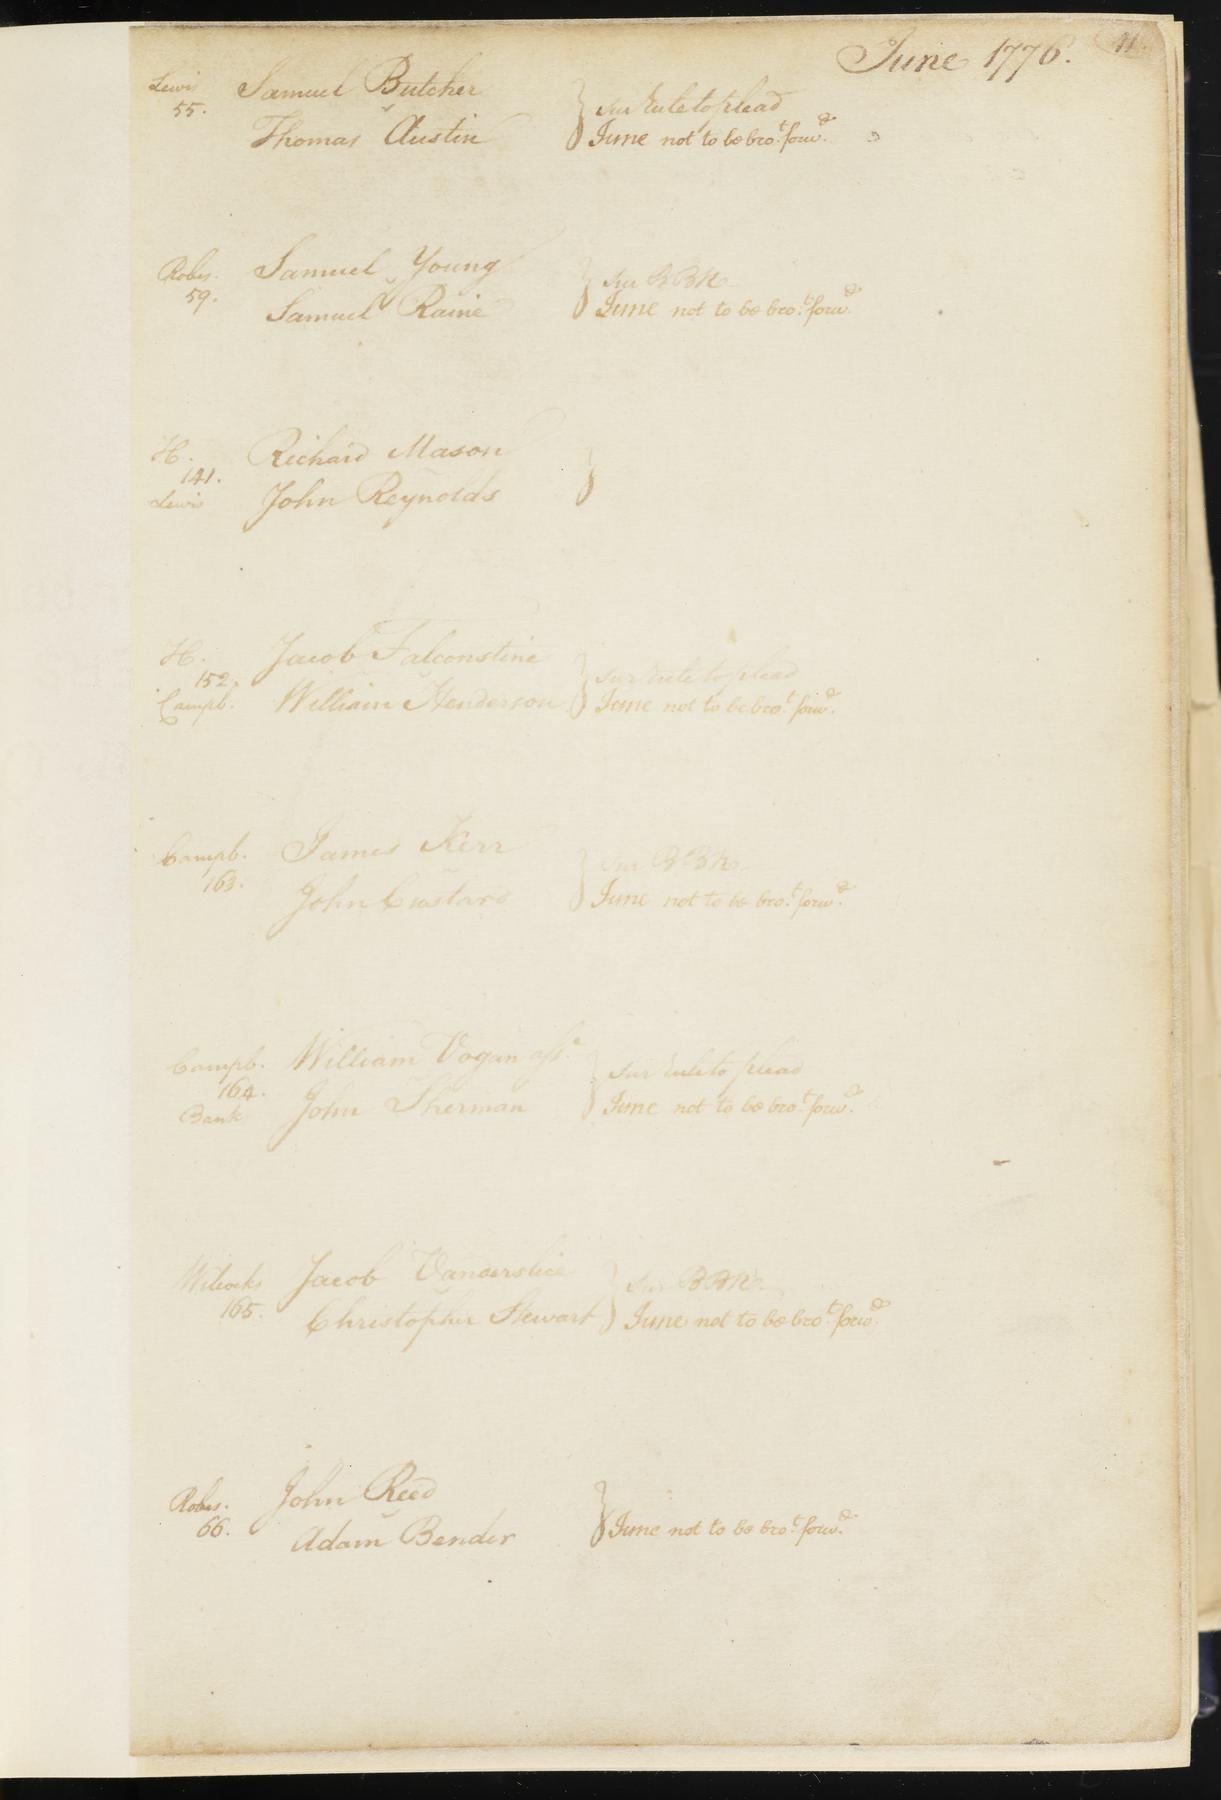 June 1776.
11.
Lewis Samuel Butcher } Sur Rule to plead
55. v
Thomas Austin June not to be bro.t forw.d
Robes. Samuel Young } Sur BBR
59. v
Samuel Raine June not to be bro.t forw.d
H. Richard Mason }
141.
Lewis John Reynolds
H. Jacob Falconstine } Sur Rule to plead
152.
Campb. William Henderson June not to be bro.t forw.d
Campb. James Kerr } Sur BBR
163.
John Custard June not to be bro.t forw.d
Campb. William Vogan ass.e } Sur Rule to plead
164.
Bank John Sherman June not to be bro.t forw.d
Wilcocks Jacob Vanderslice } Sur BBR.
165.
Christopher Stewart June not to be bro.t forw.d
Robes. John Reed }
66. v
Adam Bender June not to be bro.t forw.d